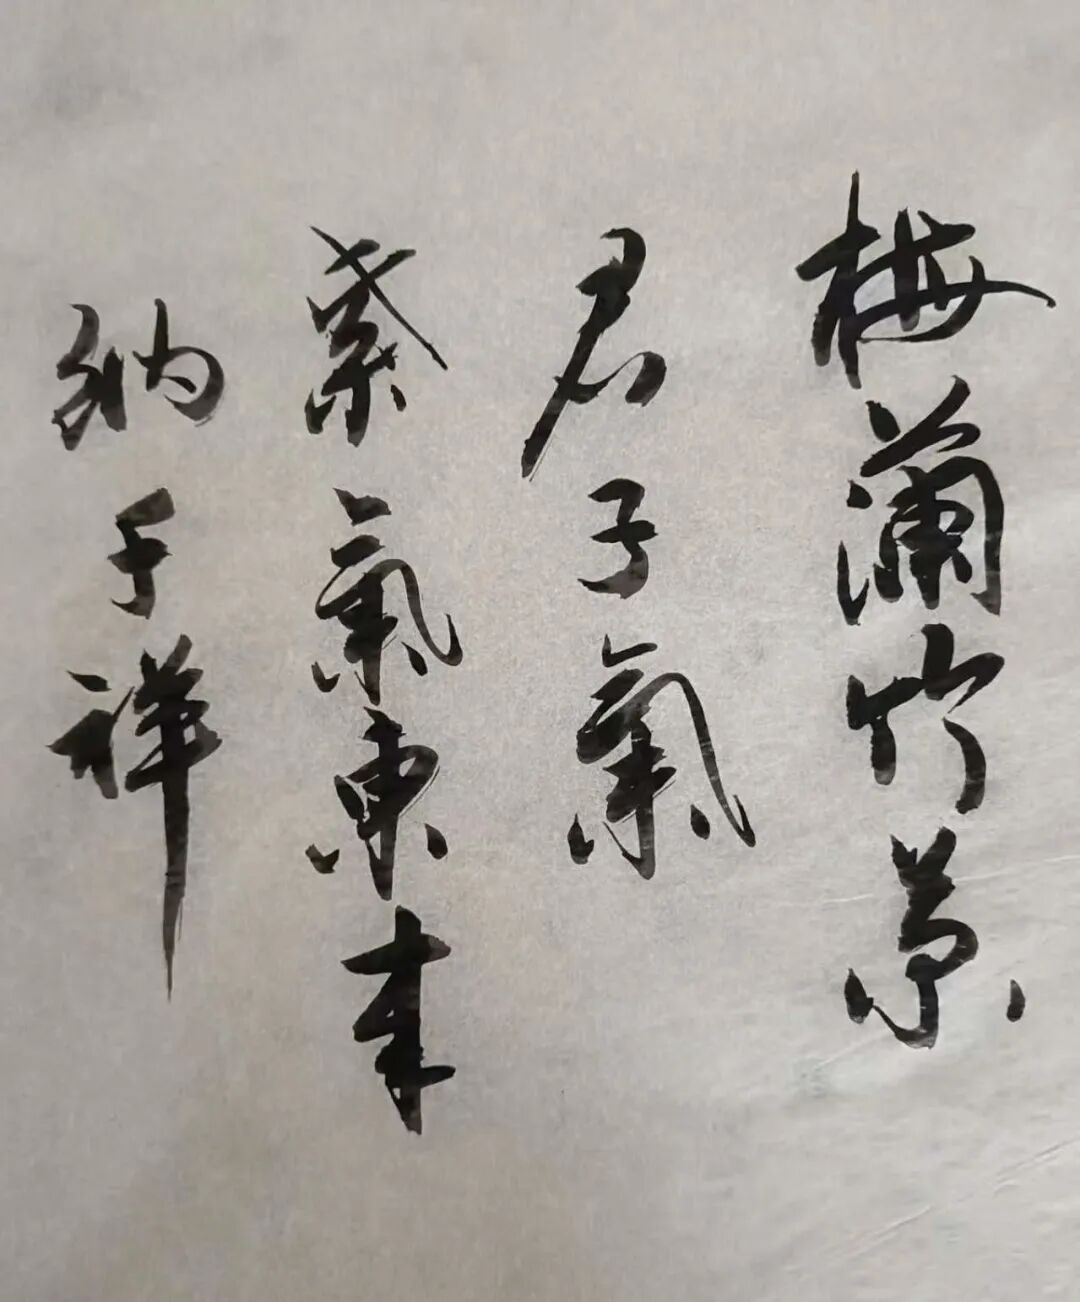 梅蘭竹菊
君子氣
紫氣東来
納于祥